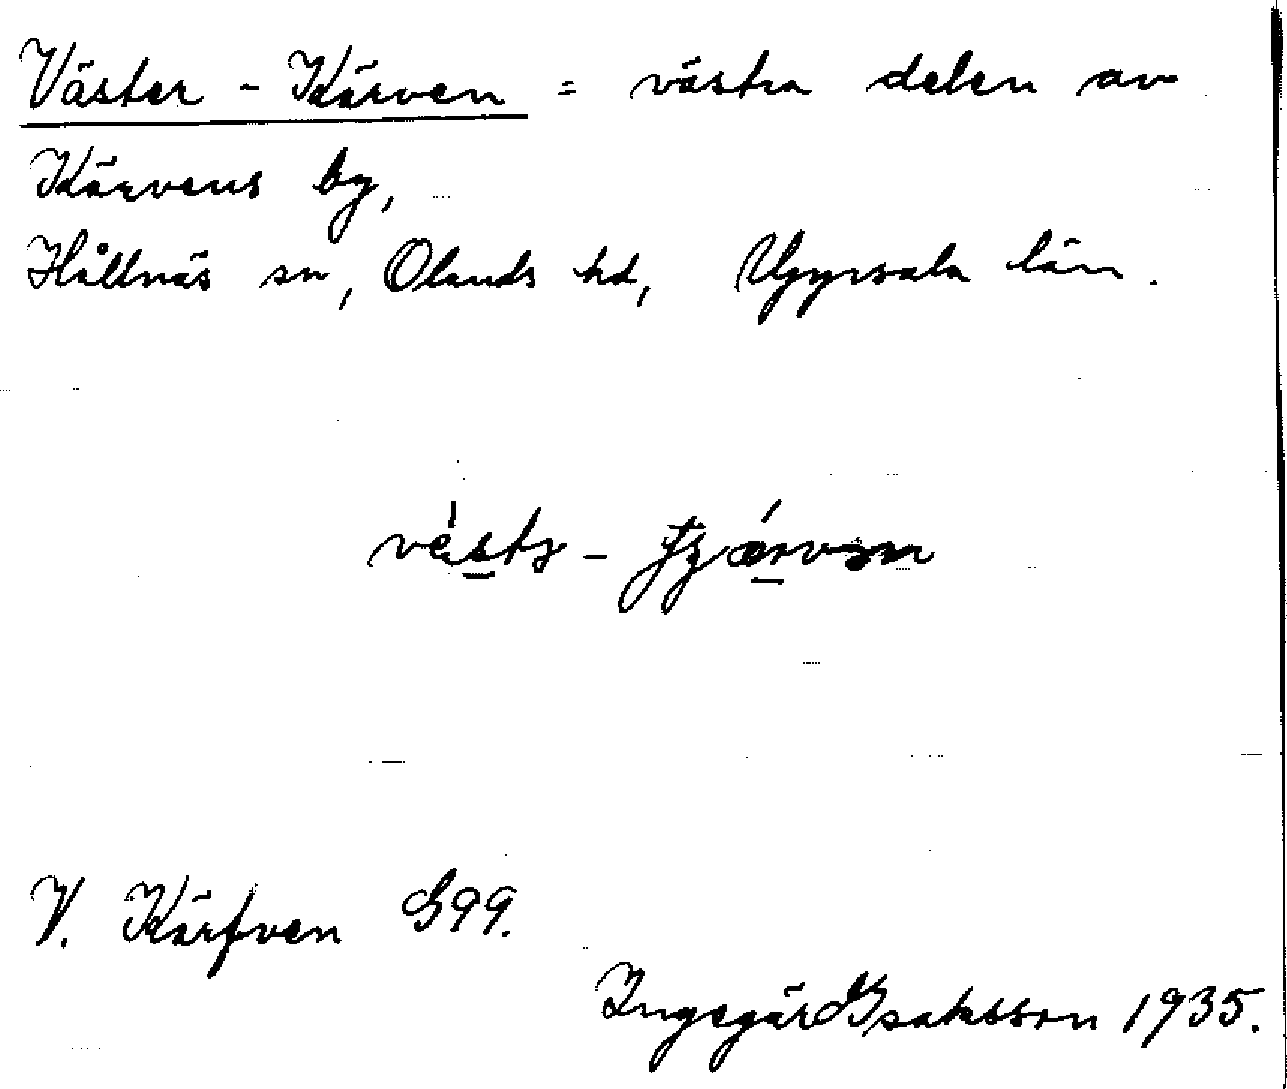 Väster - Kärven = västra delen av
Kärvens by,
Hållnäs sn, Olands hd, Uppsala län.
V. Kärfven G99.
Ingegärd Isaksson 1935.